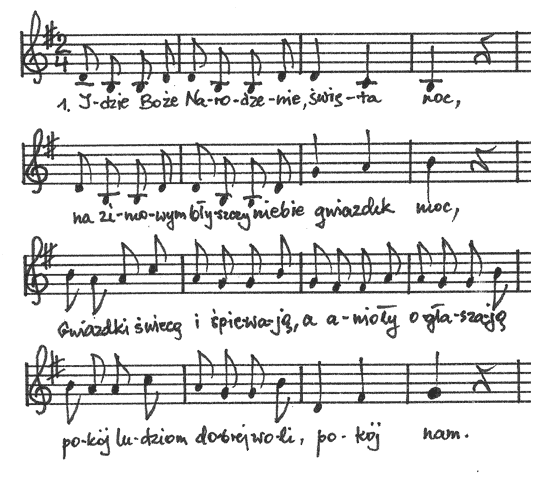 2
4
1. I-dzie Boże Na-ro-dze-nie, świę-ta noc,
na zi-mo-wym błysz-czy niebie gwiazdek moc,
Gwiazdki świecą i śpie-wa-ją, a a-nioły o-gła-sza-ją
po-kój lu-dziom do-brej wo-li, po-kój nam.